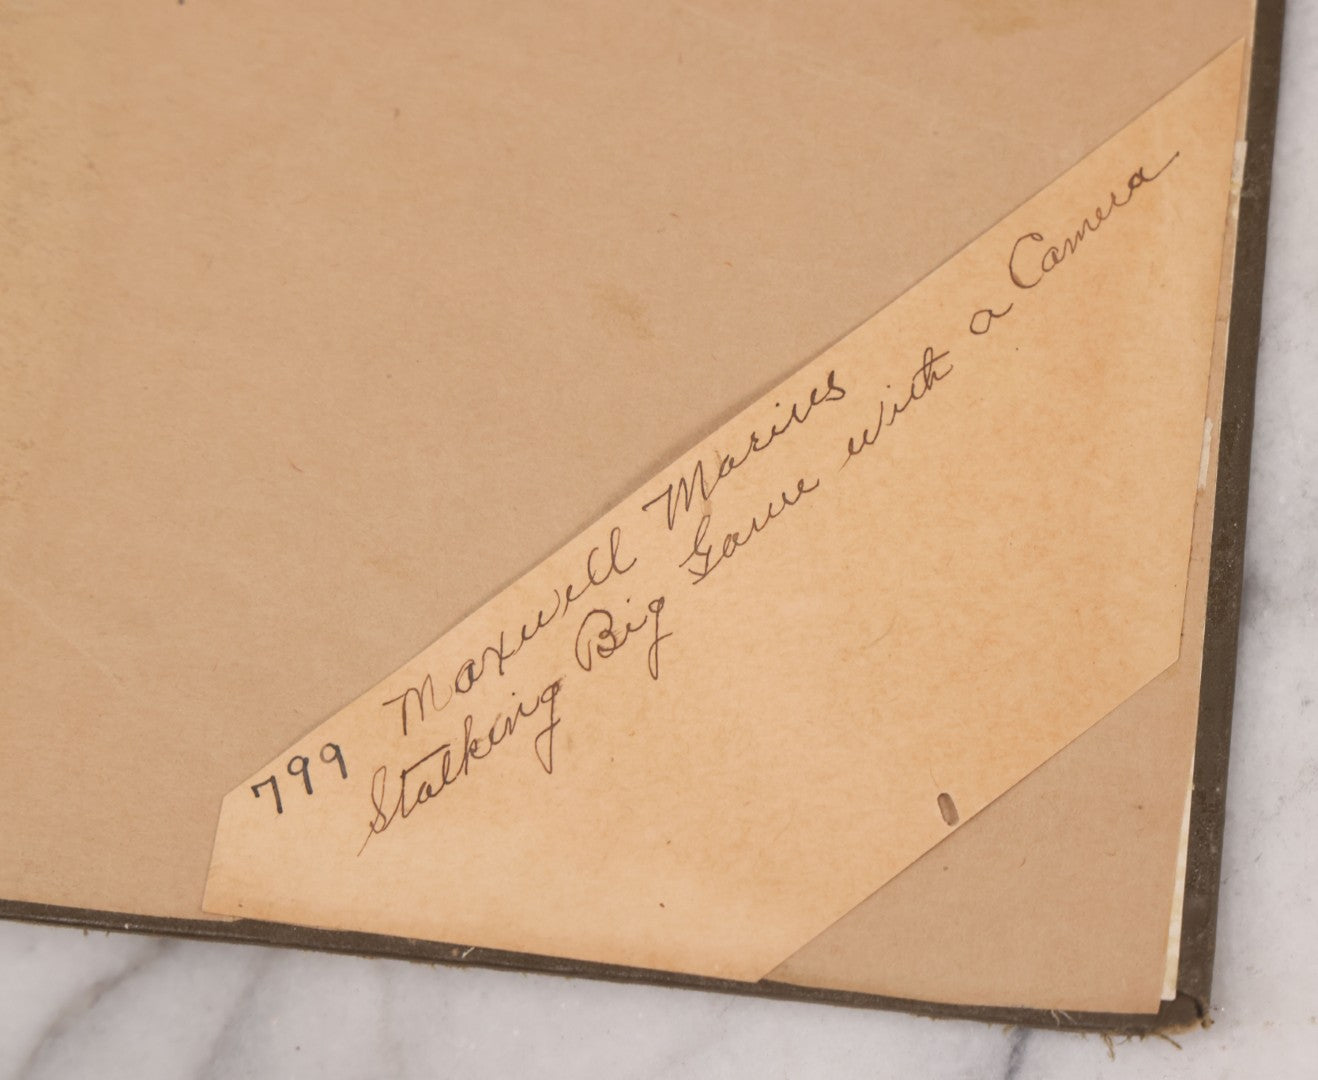 799 Maxwell Marius
Stalking Big Game with a Camera